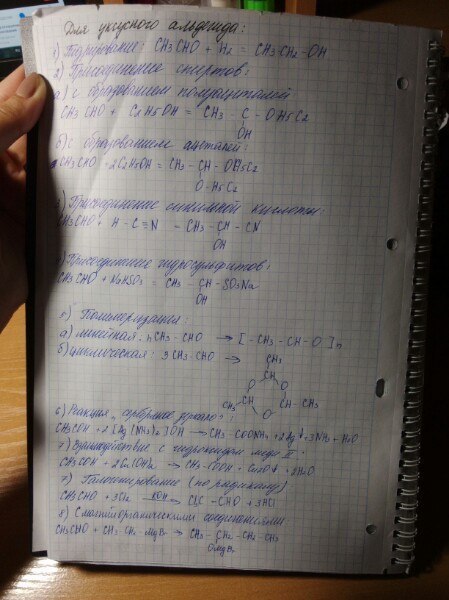 Для уксусного альдегида:
1) Гидрирование: CH3CHO + H2 = CH3CH2-OH
2) Присоединение спиртов:
а) с образованием полуацеталей
CH3 CHO + C2H5OH = CH3 - C - OH5C2
OH
б) с образованием ацеталей:
CH3CHO + 2C2H5OH = CH3 - CH - OH5C2
O-H5C2
Присоединение синильной кислоты:
CH3CHO + H-C≡N - CH3 - CH - CN
OH
Присоединение гидросульфитов:
CH3CHO + NaHSO3 - CH3 - CH - SO3Na
OH
5) Полимеризация:
а) линейная. nCH3-CHO → [- CH3 - CH - O]n
б) циклическая: 3CH3-CHO →
CH3
CH
O O
CH CH - CH3
CH3 O
6) Реакция „серебряное зеркало":
CH3COH + 2[Ag(NH3)2]OH → CH3-COONH4 + 2Ag↓ + 3NH3 + H2O
7) Взаимодействие с гидроксидом меди II
CH3COH + 2Cu(OH)2 → CH3-COOH + Cu2O↓ + 2H2O
7) Галогенирование (по радикалу)
CH3CHO + 3Cl2 → - CHO + 3HCl
8) С магнийорганическими соединениями
CH3CHO + CH3-CH2-MgBr → CH3 - CH2 - CH2 - CH3
OMgBr